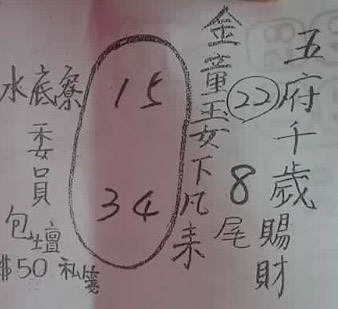 五府千歲賜財
22 8尾
金童玉女下凡來
15
34
水底寮
委員
包壇
$50 私箋